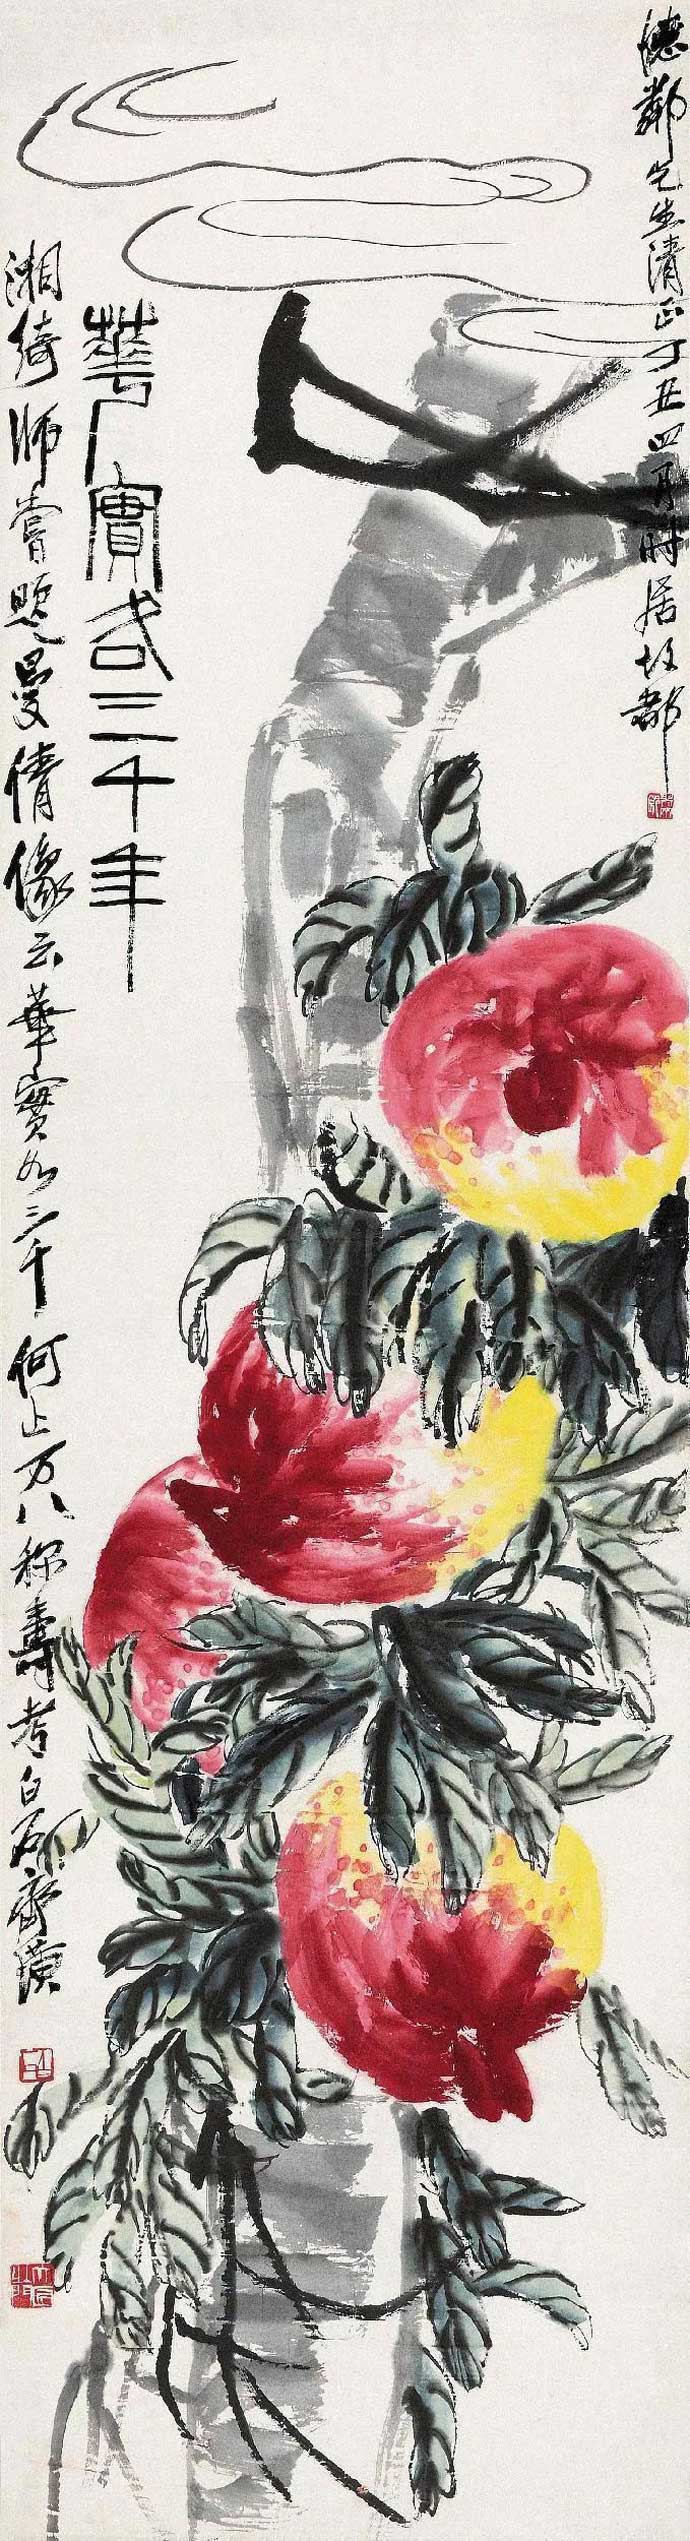 德鄰先生清正丁丑四月时居故都
華實各三千年
湘綺師嘗題曼倩像云華實如三千何止万八称壽考白石齊璜